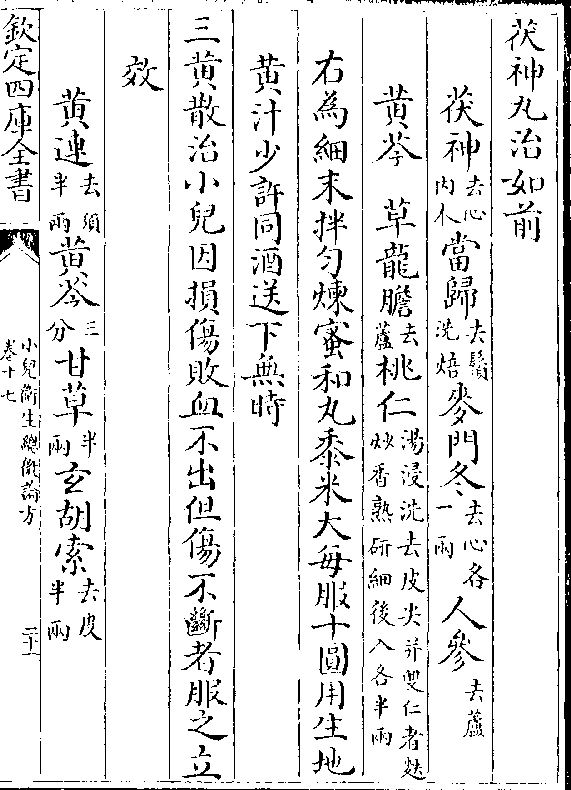 茯神丸治如前
茯神去心内木當歸去鬚洗焙麥門冬去心各一兩人參去蘆
黄芩 草龍膽去蘆桃仁湯浸洗去皮尖并雙仁者麩炒香熟研細後入各半兩
右為細末拌匀煉蜜和丸黍米大每服十圓用生地
黄汁少許同酒送下無時
三黄散治小兒因損傷敗血不出但傷不斷者服之立
效
黄連去須半兩黄芩三分甘草半兩玄胡索去皮半兩
欽定四庫全書
小兒衛生總微論方
卷十七
二十一